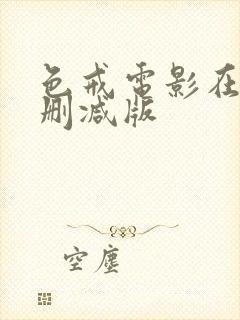 色戒電影在
刪減版
空塵